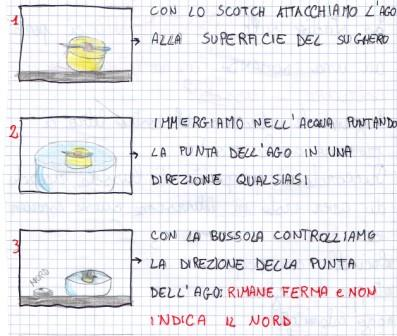 1
CON LO SCOTCH ATTACCHIAMO L'AGO
ALLA SUPERFICIE DEL SUGHERO
2
IMMERGIAMO NELL'ACQUA PUNTANDO
LA PUNTA DELL'AGO IN UNA
DIREZIONE QUALSIASI
3
NORD
CON LA BUSSOLA CONTROLLIAMO
LA DIREZIONE DELLA PUNTA
DELL'AGO: RIMANE FERMA e NON
INDICA IL NORD